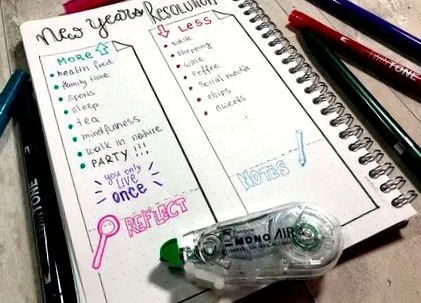 New Years Resolution
MORE
health food
family time
sports
sleep
tea
mindfulness
walk in nature
PARTY !!!
"you only
LIVE
once
REFLECT
LESS
work
shopping
wine
coffee
social media
chips
sweets
NOTES
MONO AIR
TONE